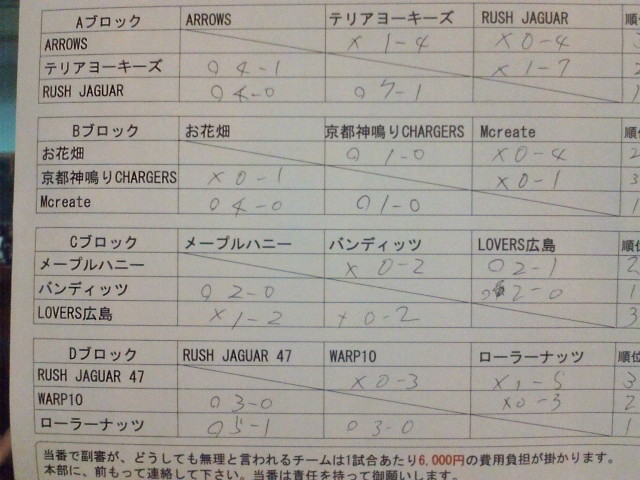 Aブロック ARROWS テリアヨーキーズ RUSH JAGUAR 順
ARROWS × 1-4 × 0-4
テリアヨーキーズ ○ 4-1 × 1-7 2
RUSH JAGUAR ○ 4-0 ○ 7-1 1
Bブロック お花畑 京都神鳴りCHARGERS Mcreate 順位
お花畑 ○ 1-0 × 0-4 2
京都神鳴りCHARGERS × 0-1 × 0-1 3
Mcreate ○ 4-0 ○ 1-0 1
Cブロック メープルハニー バンディッツ LOVERS広島 順位
メープルハニー × 0-2 ○ 2-1 2
バンディッツ ○ 2-0 ○ 2-0 1
LOVERS広島 × 1-2 × 0-2 3
Dブロック RUSH JAGUAR 47 WARP10 ローラーナッツ 順位
RUSH JAGUAR 47 × 0-3 × 1-5 3
WARP10 ○ 3-0 × 0-3 2
ローラーナッツ ○ 5-1 ○ 3-0 1
当番で副審が、どうしても無理と言われるチームは1試合あたり6,000円の費用負担が掛かります。
本部に、前もって連絡して下さい。当番は責任を持って御願いします。